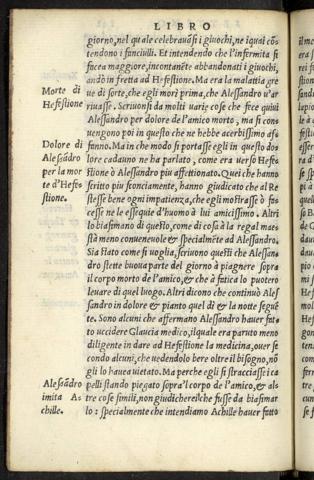 LIBRO
giorno, nel quale celebravāsi i giuochi, ne iquai cō-
tendono i fanciulli. Et intendendo che l'infermita si
facea maggiore, incontanēte abbandonati i giuochi,
andò in fretta ad Hefestione. Ma era la malattia gre
Morte di
Hefestione
ue di sorte, che egli morì prima, che Alessandro v'ar
riuasse. Scriuonsi da molti varie cose che fece quiui
Alessandro per dolore de l'amico morto, ma si con-
uengono poi in questo che ne hebbe acerbissimo af-
Dolore di
Alesādro
per la mor
te d'Hefe-
stione.
fanno. Ma in che modo si portasse egli in questo do-
lore cadauno ne ha parlato, come era verso Hefe-
stione ò Alessandro piu affettionato. Quei che hanno
scritto piu sconciamente, hanno giudicato che al Re
stesse bene ogni impatienza, che egli mostrasse ò fa-
cesse ne le essequie d'huomo à lui amicissimo. Altri
lo biasimano di questo, come di cosa à la regal mae-
stà meno conueneuole & specialmēte ad Alessandro.
Sia stato come si voglia, scriuono questi che Alessan-
dro stette buona parte del giorno à piagnere sopra
il corpo morto de l'amico, & che à fatica lo potero
leuare di quel luogo. Altri dicono che continuò Ales
sandro in dolore & pianto quel dì & la notte seguē-
te. Sono alcuni che affermano Alessandro hauer fat-
to uccidere Glaucia medico, ilquale era paruto meno
diligente in dare ad Hefestione la medicina, ouer se
condo alcuni, che uedendolo bere oltre il bisogno, nō
gli lo hauea uietato. Ma perche egli si stracciasse i ca
Alesādro
imita A-
chille.
pelli stando piegato sopra'l corpo de l'amico, & al-
tre cose simili, non giudicherei che fusse da biasimar
lo: specialmente che intendiamo Achille hauer fatto